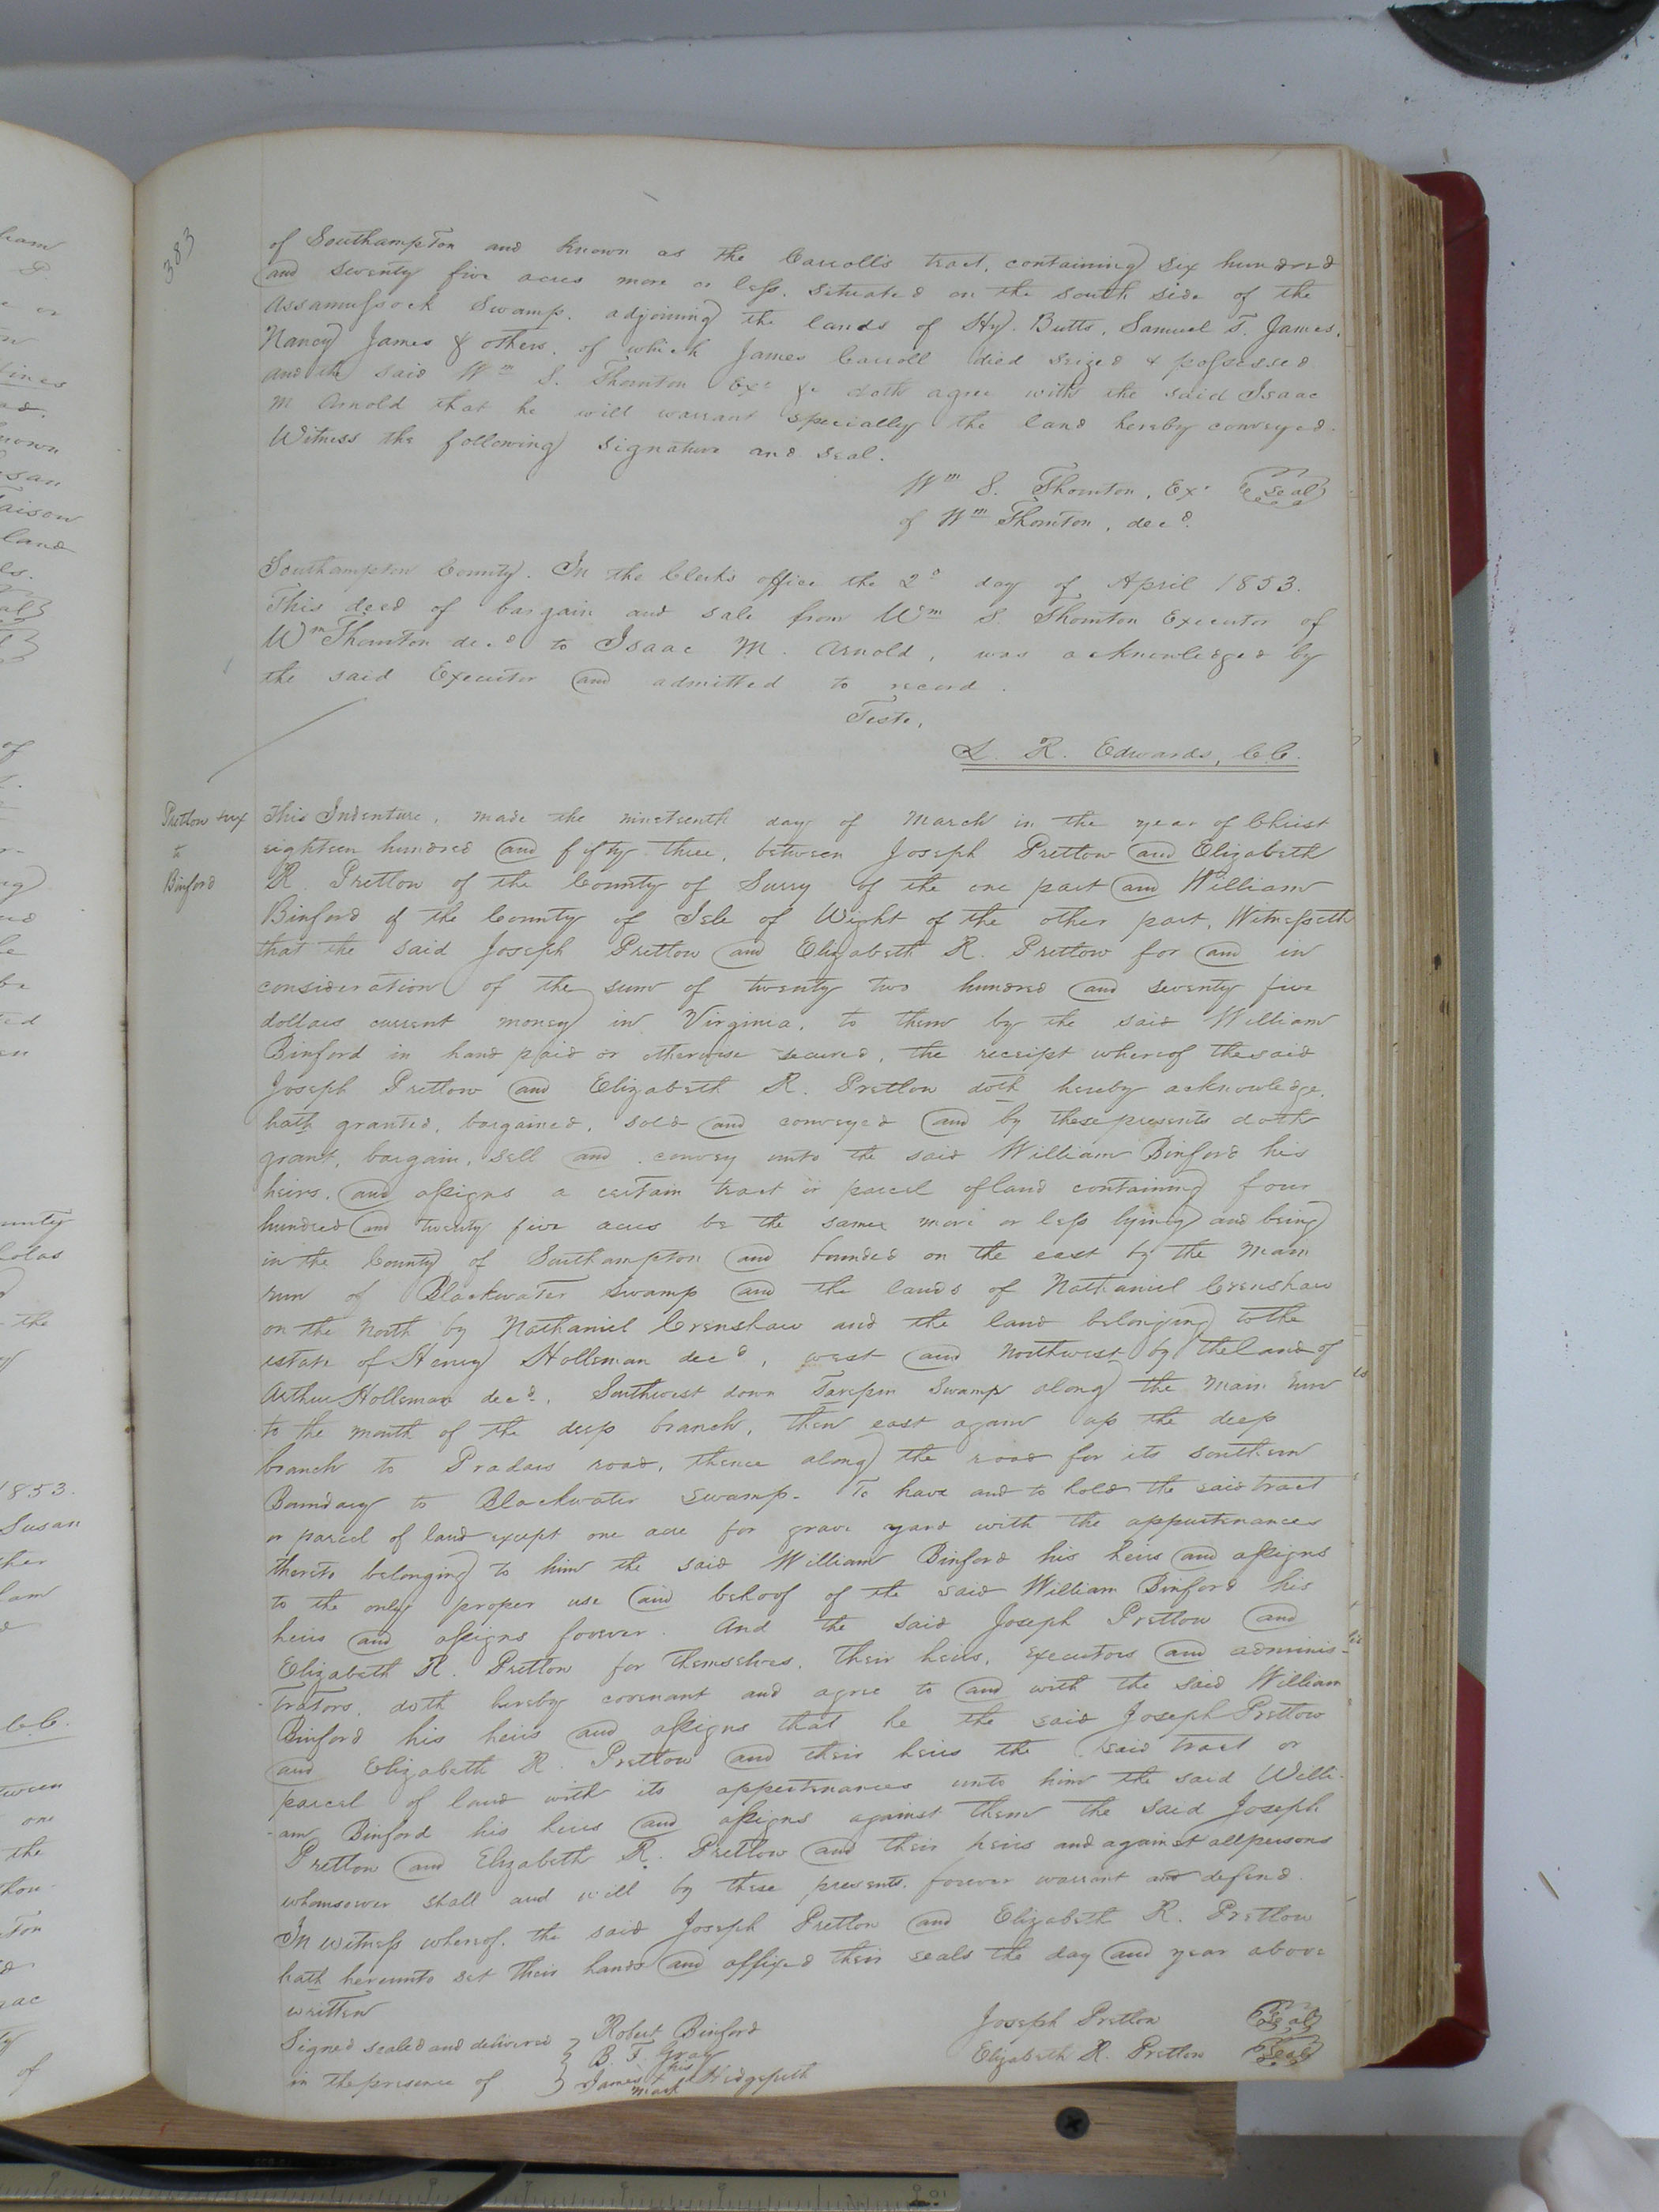 383
of Southampton and known as the Carroll's tract, containing six hundred
and seventy five acres more or less. situated on the south side of the
Assamussock Swamp. adjoining the lands of Hy. Butts, Samuel T. James,
Nancy James & others, of which James Carroll died seized & possessed
and the said Wm S. Thornton Exr &c doth agree with the said Isaac
M Arnold that he will warrant specially the land hereby conveyed.
Witness the following signature and seal.
Wm S. Thornton, Exr {seal}
of Wm Thornton, decd.
Southampton County. In the Clerks office the 2d day of April 1853.
This deed of bargain and sale from Wm S. Thornton Executor of
Wm Thornton decd to Isaac M. Arnold, was acknowledged by
the said Executor and admitted to record.
Teste,
L. R. Edwards, C.C.
Pretlow & ux
to
Binford
This Indenture, made the nineteenth day of March in the year of Christ
eighteen hundred and fifty three, between Joseph Pretlow and Elizabeth
R. Pretlow of the County of Surry of the one part and William
Binford of the County of Isle of Wight of the other part, Witnesseth
that the said Joseph Pretlow and Elizabeth R. Pretlow for and in
consideration of the sum of twenty two hundred and seventy five
dollars current money in Virginia, to them by the said William
Binford in hand paid or otherwise secured, the receipt whereof the said
Joseph Pretlow and Elizabeth R. Pretlow doth hereby acknowledge,
hath granted, bargained, sold and conveyed and by these presents doth
grant, bargain, sell and convey unto the said William Binford his
heirs, and assigns a certain tract or parcel of land containing four
hundred and twenty five acres be the same more or less lying and being
in the County of Southampton and bounded on the east by the main
run of Blackwater Swamp and the lands of Nathaniel Crenshaw
on the North by Nathaniel Crenshaw and the land belonging to the
estate of Henry Holleman decd, west and Northwest by the land of
Arthur Holleman decd. Southwest down Tarepin Swamp along the main run
to the mouth of the deep branch, then east again up the deep
branch to Pradars road, thence along the road for its southern
Boundary to Blackwater swamp. To have and to hold the said tract
or parcel of land except one acre for grave yard with the appurtenances
thereto belonging to him the said William Binford his heirs and assigns
to the only proper use and behoof of the said William Binford his
heirs and assigns forever. And the said Joseph Pretlow and
Elizabeth R. Pretlow for themselves, their heirs, executors and adminis-
trators, doth hereby covenant and agree to and with the said William
Binford his heirs and assigns that he the said Joseph Pretlow
and Elizabeth R. Pretlow and their heirs the said tract or
parcel of land with its appurtenances unto him the said Willi-
am Binford his heirs and assigns against them the said Joseph
Pretlow and Elizabeth R. Pretlow and their heirs and against all persons
whomsoever shall and will by these presents forever warrant and defend.
In witness whereof. the said Joseph Pretlow and Elizabeth R. Pretlow
hath hereunto set their hands and affixed their seals the day and year above
written
Signed sealed and delivered
in the presence of
Robert Binford
B. F. Gray
James his X mark Hedgepeth
Joseph Pretlow {Seal}
Elizabeth R. Pretlow {Seal}